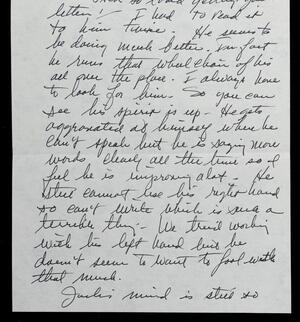 letter!! I had to read it
to him twice. He seems to
be doing much better. In fact
he runs that wheel chair of his
all over the place. I always have
to look for him. So you can
see his spirit is up. He gets
aggravated at himself when he
can't speak but he is saying more
words clearly all the time so I
feel he is improving alot. He
still cannot use his right hand
so can't write which is such a
terrible thing. We tried working
with his left hand but he
doesn't seem to want to fool with
that much.
Jack's mind is still so